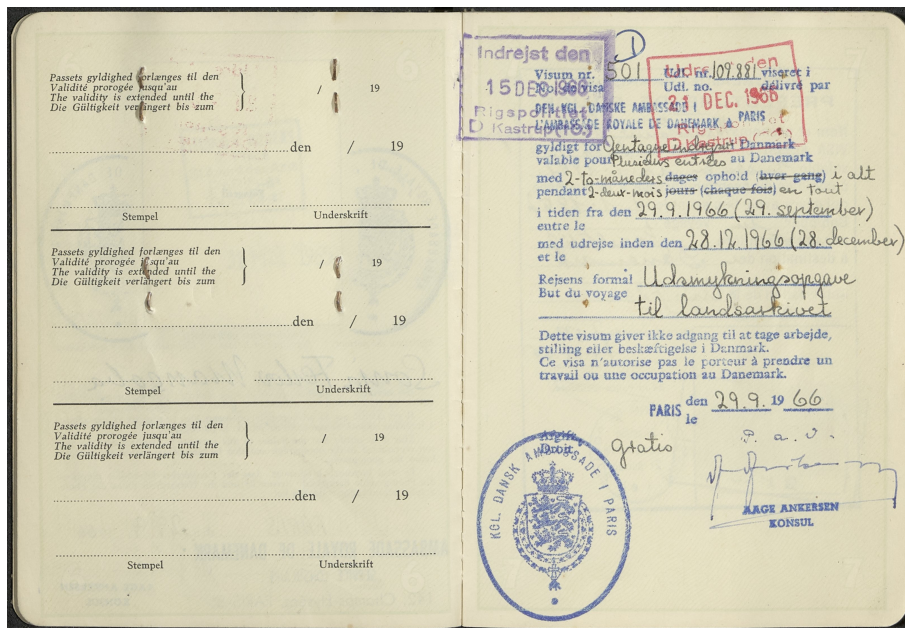 Passets gyldighed forlænges til den
Validité prorogée jusqu'au
The validity is extended until the
Die Gültigkeit verlängert bis zum
/ 19
den / 19
Stempel Underskrift
Passets gyldighed forlænges til den
Validité prorogée jusqu'au
The validity is extended until the
Die Gültigkeit verlängert bis zum
/ 19
den / 19
Stempel Underskrift
Passets gyldighed forlænges til den
Validité prorogée jusqu'au
The validity is extended until the
Die Gültigkeit verlängert bis zum
/ 19
den / 19
Stempel Underskrift
Indrejst den
15 DEC 1966
Rigspolitiet
D Kastrup
1
Udrejst den
21 DEC. 1966
Rigspolitiet
D Kastrup
Visum nr. 501 Udl. nr. 109.881 viseret i
No. de visa Udl. no. délivré par
DEN KGL. DANSKE AMBASSADE I
L'AMBASSADE ROYALE DE DANEMARK à PARIS
gyldigt for Gentagne indrejser Danmark
valable pour Plusieurs entrées au Danemark
med 2-to-måneders dages ophold (hver gang) i alt
pendant 2-deux-mois jours (chaque fois) en tout
i tiden fra den 29.9.1966 (29. september)
entre le
med udrejse inden den 28.12.1966 (28. december)
et le
Rejsens formål Udsmykningsopgave
But du voyage
til landsarkivet
Dette visum giver ikke adgang til at tage arbejde,
stilling eller beskæftigelse i Danmark.
Ce visa n'autorise pas le porteur à prendre un
travail ou une occupation au Danemark.
PARIS den 29.9. 19 66
le
Afgift
Droit
gratis
P. a. v.
KGL. DANSK AMBASSADE I PARIS
AAGE ANKERSEN
KONSUL